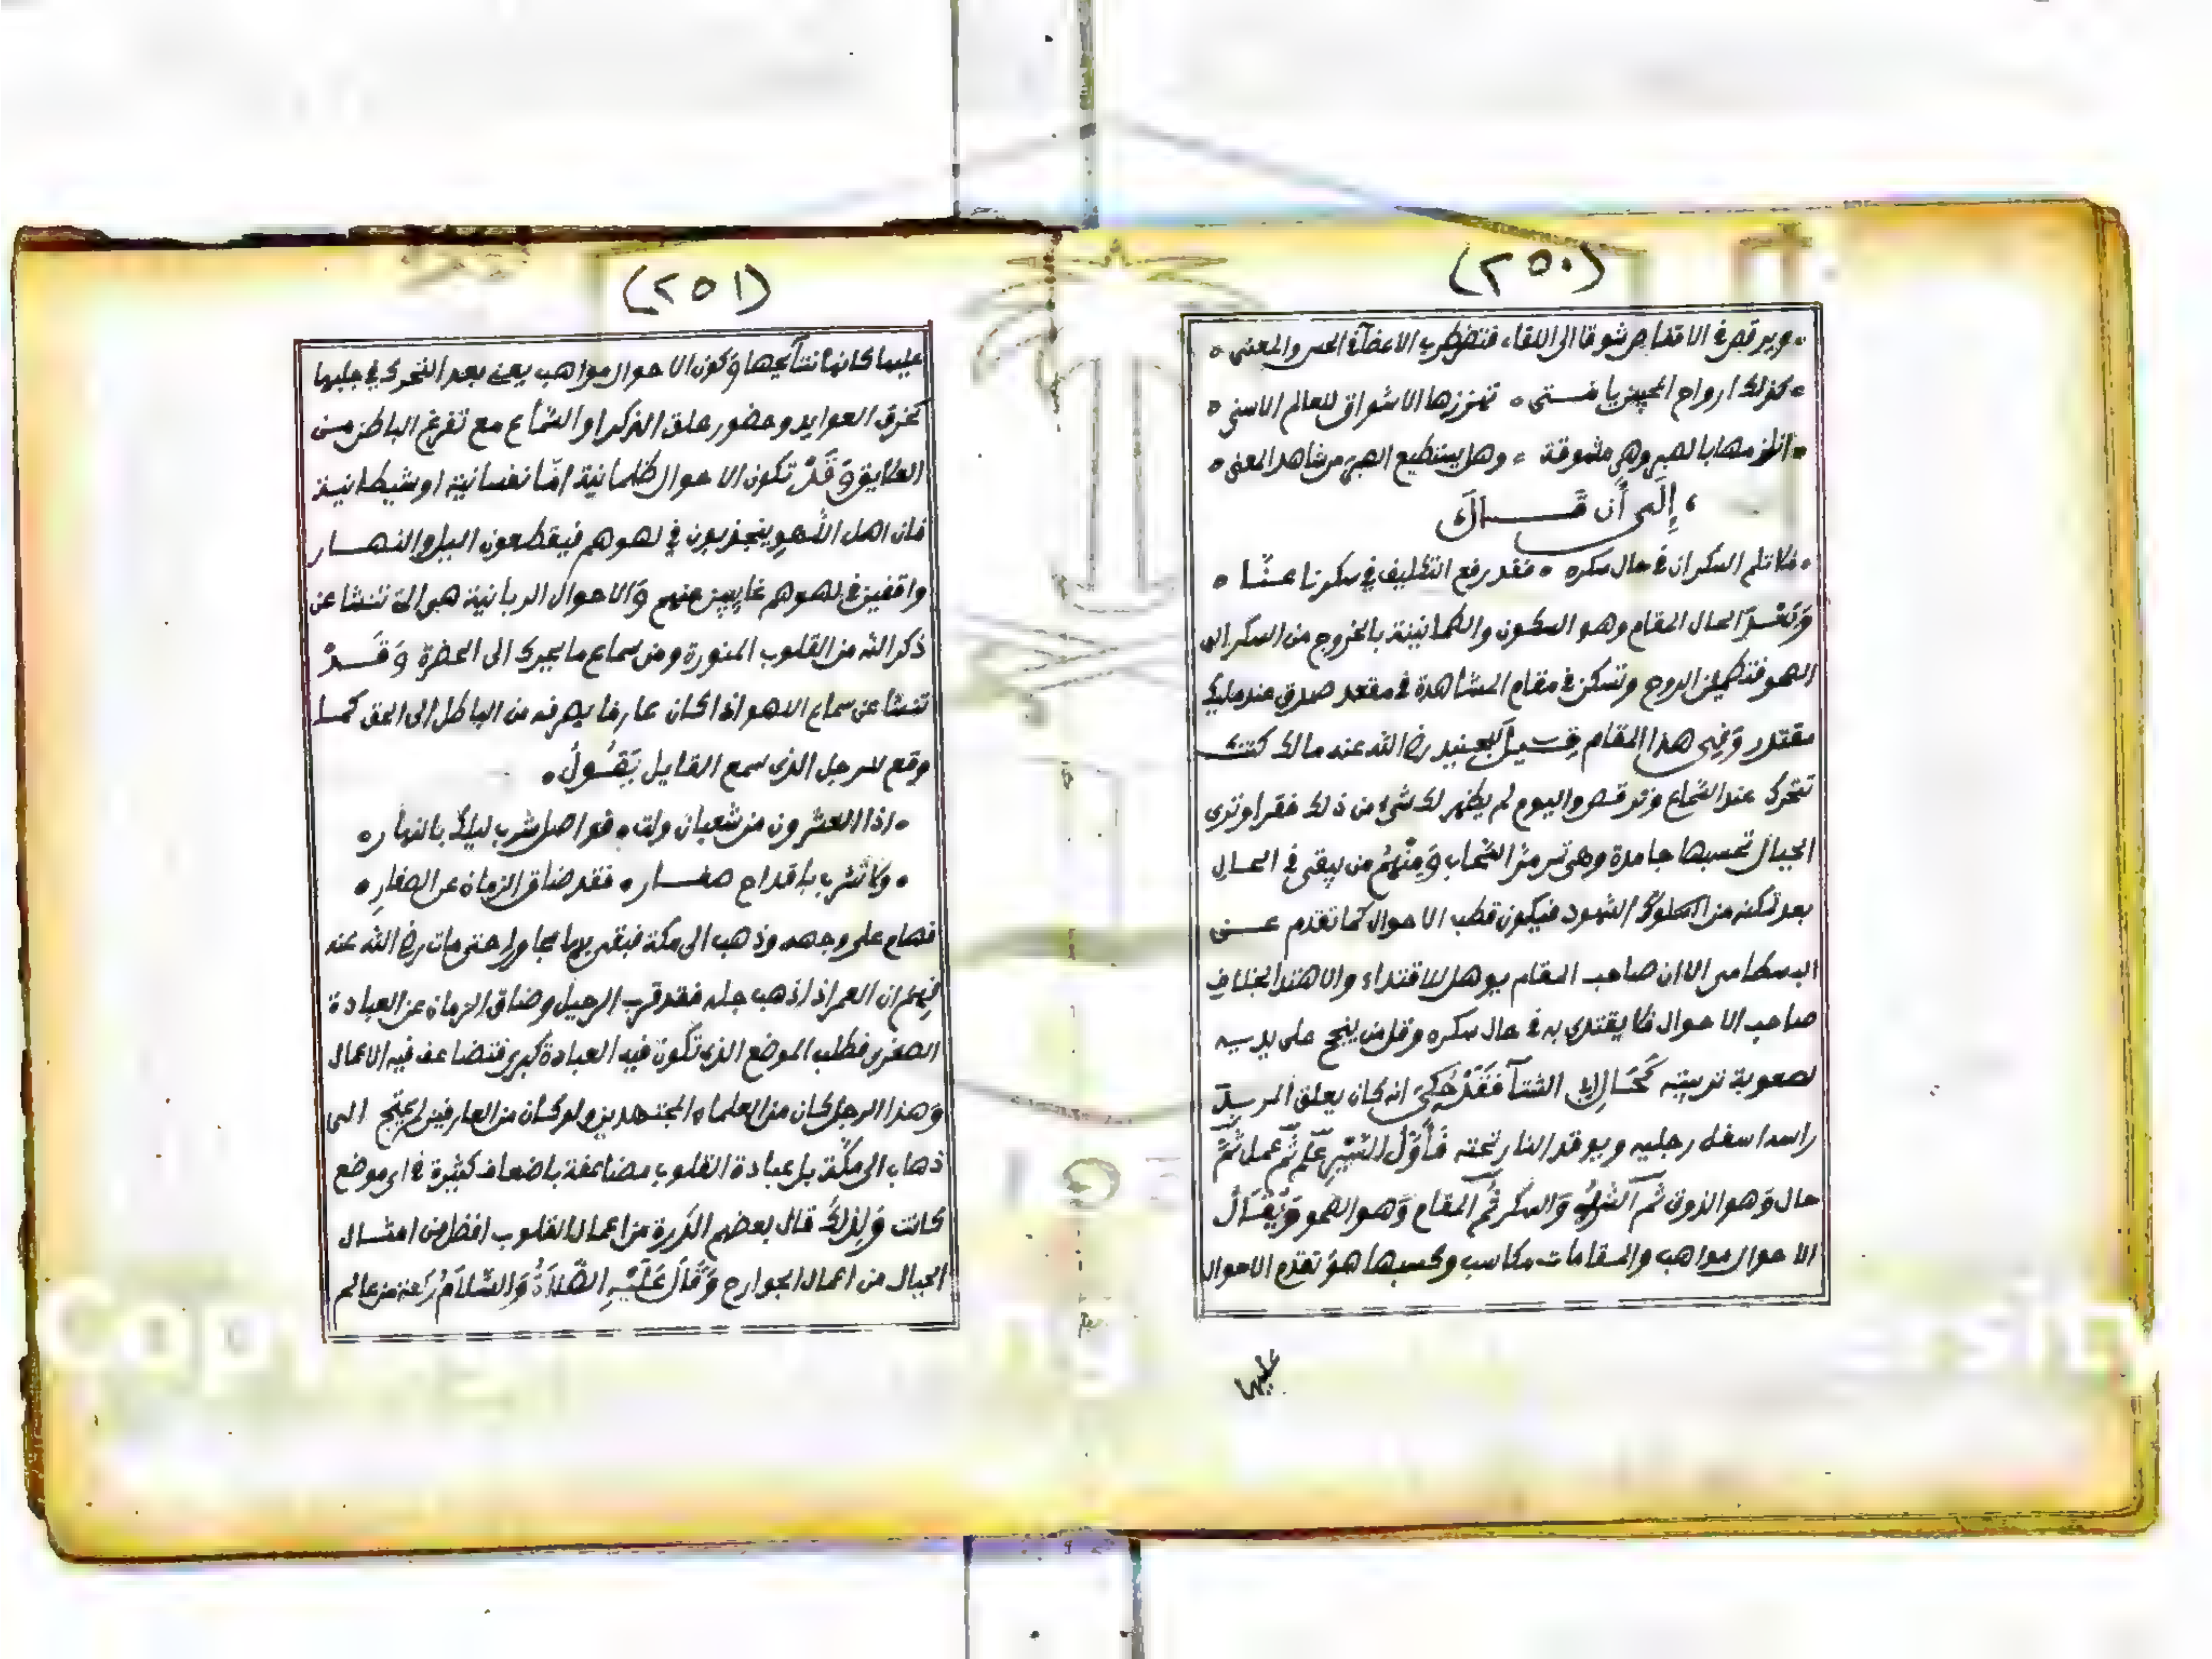 (٢٥٠)
ويرقص في الاقفاص شوقا الى اللقاء فتضطرب الاعضآء في الحس والمعنى
كذلك ارواح المحبين يا فتى تهززها الاشواق للعالم الاسنى
انلزمها بالصبر وهي مشوقة وهل يستطيع الصبر من شاهد المعنى
إِلَى أَن قَالَ
فلا تلم السكران في حال سكره فقد رفع التكليف في سكرنا عنّا
وَبَعْدَ الحال المقام وهو السكون والطمانينة بالخروج من السكر الى
الصحو فتطمئن الروح وتسكن في مقام المشاهدة في مقعد صدق عند مليك
مقتدر وَفِي هذا المقام قيل للجنيد رضي الله عنه مالك كنت
تتحرك عند السَّماع وترقص واليوم لم يظهر لك شيء من ذلك فقرا وترى
الجبال تحسبها جامدة وهي تمر مرّ السَّحاب وَمِنْهُمْ من يبقى في الحال
بعد تمكنه من السلوك الشهود فيكون قطب الاحوال كما تقدم عن
البسطامي الا ان صاحب المقام يوهل للاقتداء والاهتدا بخلاف
صاحب الاحوال فلا يقتدى به في حال سكره وقل من ينجح على يديه
لصعوبة تربيته كَحَالِ الشتآ فَقَدْ حُكِيَ انه كان يعلق المريد
راسه اسفل رجليه ويوقد النار تحته فَأَوَّلُ السَّيْرِ عِلْم ثُمَّ عمل ثُمَّ
حال وَهو الذوق ثُمَّ الشرب وَالسكر ثُمَّ المقام وَهو الصحو وَيُقَالُ
الاحوال مواهب والمقامات مكاسب وكسبها هو تقدم الاحوال
عليها
(٢٥١)
عليها كانها نتآئجها وَكون الاحوال مواهب يعني بعد التحرك في جلبها
كخرق العوايد وحضور حلق الذكر او السَّماع مع تفرغ الباطن من
العلايق وَقَدْ تكون الاحوال ظلمانية امّا نفسانية او شيطانية
فان اهل اللَّهو ينجذبون في لهوهم فيقطعون اليل والنهار
واقفين في لهوهم غايبين عنهم وَالاحوال الربانية هي التي تنشا عن
ذكر الله من القلوب المنورة ومن سماع ما يحرك الى الحضرة وَقَدْ
تنشا عن سماع اللهو اذا كان عارفا يصرفه من الباطل الى الحق كما
وقع للرجل الذي سمع القايل يَقُولُ
اذا العشرون من شعبان ولت فواصل شرب ليلك بالنهار
ولا تشرب باقداح صغار فقد ضاق الزمان عن الصغارِ
فهام على وجهه وذهب الى مكة فبقي بها مجاورا حتى مات رضي الله عنه
فهم ان العمر اذا ذهب جله فقد قرب الرحيل وضاق الزمان عن العبادة
الصغرى فطلب الموضع الذي تكون فيه العبادة كبرى فتضاعف فيه الاعمال
وَهذا الرجل كان من العلماء المجتهدين ولو كان من العارفين لم يحتج الى
ذهاب الى مكّة بل عبادة القلوب مضاعفة باضعاف كثيرة في اي موضع
كانت وَلِذَلِكَ قال بعضهم الذرة من اعمال القلوب افضل من امثال
الجبال من اعمال الجوارح وَقَالَ عَلَيْهِ الصَّلَاةُ وَالسَّلَامُ من عالم